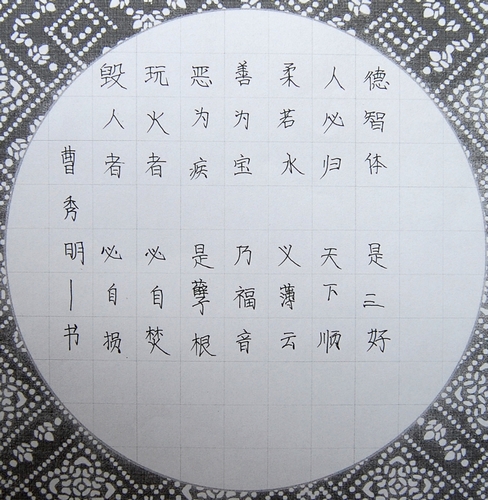 德智体 是三好
人必归 天下顺
柔若水 义薄云
善为宝 乃福音
恶为疾 是孽根
玩火者 必自焚
毁人者 必自损
曹秀明—书